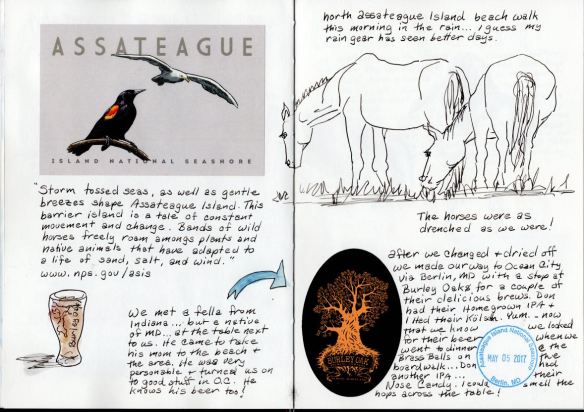 ASSATEAGUE
ISLAND NATIONAL SEASHORE
"Storm tossed seas, as well as gentle
breezes shape Assateague Island. This
barrier island is a tale of constant
movement and change. Bands of wild
horses freely roam amongs plants and
native animals that have adapted to
a life of sand, salt, and wind."
www.nps.gov/asis
We met a fella from
Indiana... but a native
of MD.. at the table next
to us. He came to take
his mom to the beach +
the area. He was very
personable + turned us on
to good stuff in O.C. He
knows his beer too!
north assateague Island beach walk
this morning in the rain... I guess my
rain gear has seen better days.
The horses were as
drenched as we were!
after we changed + dried off
we made our way to Ocean City
via Berlin, MD with a stop at
Burley Oaks for a couple of
their delicious brews. Don
had their Homegrown IPA +
I tied their Kölsh. Yum. - now
that we know we looked
for their beer when we
went to dinner @ the
Brass Balls on the
boardwalk... Don had
another IPA... their
Nose Candy. I could smell the
hops across the table!
BURLEY OAK
Assateague Island National Seashore
MAY 05 2017
Berlin, MD